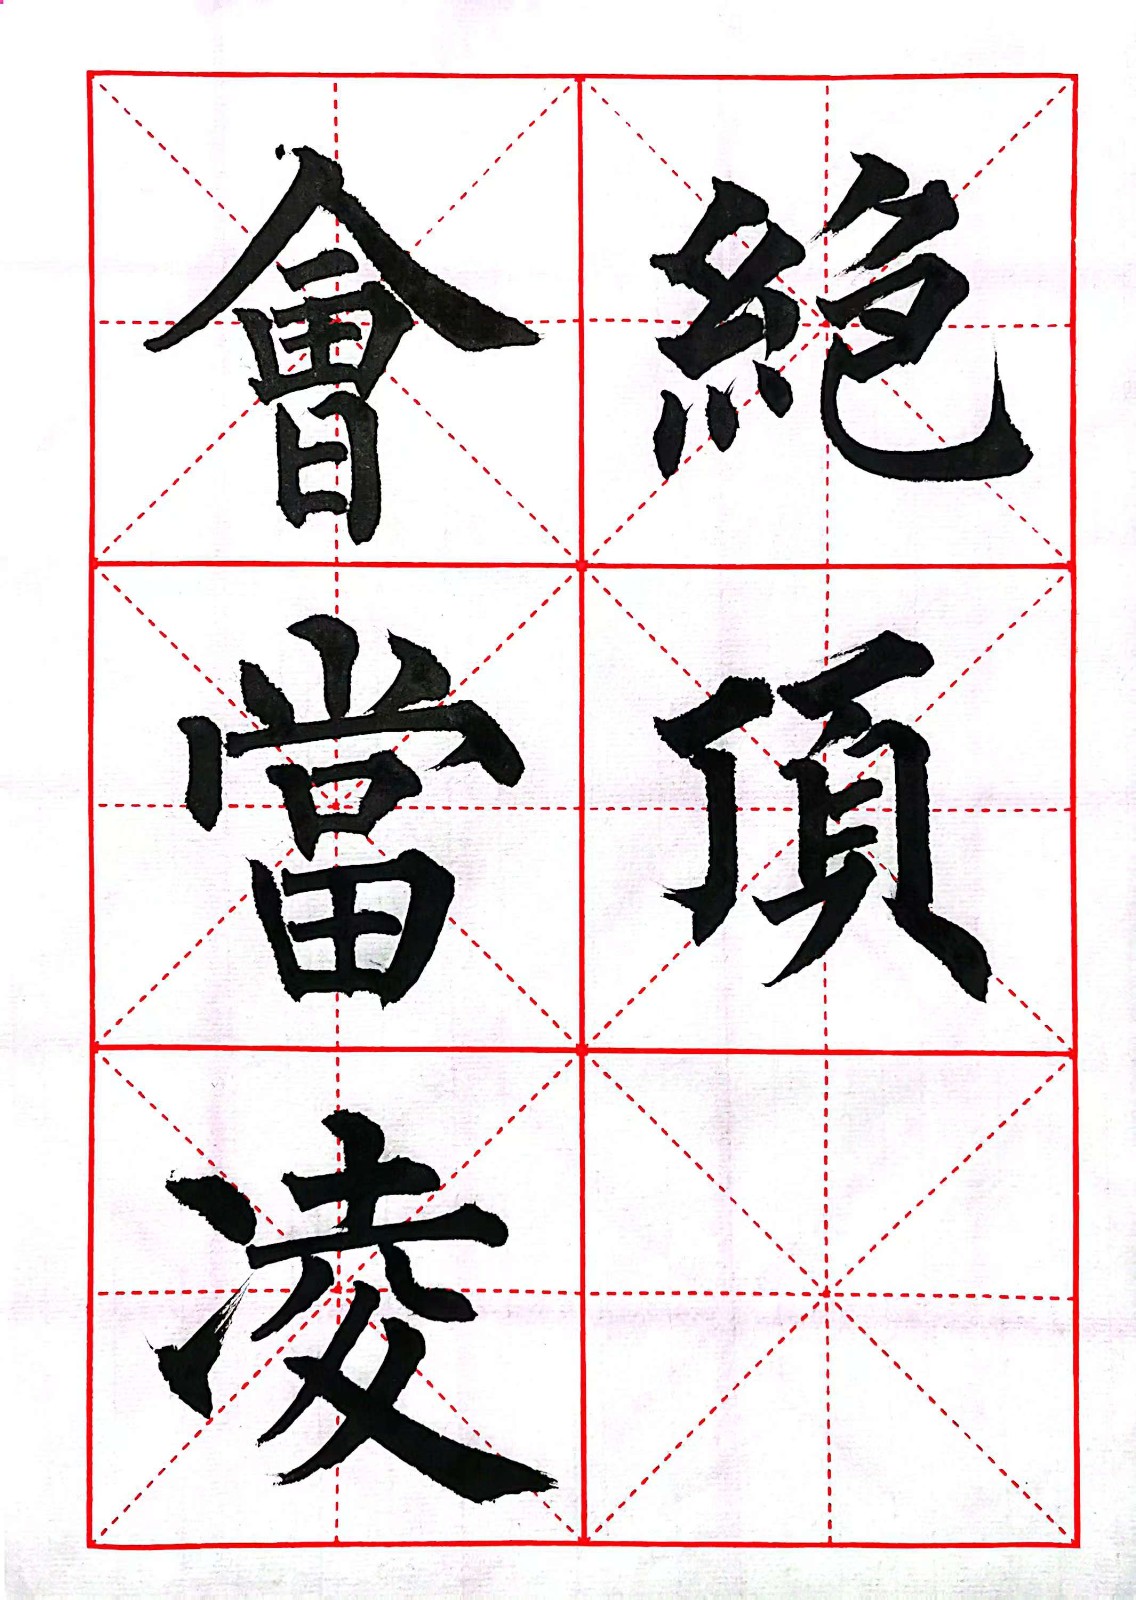 會當凌
絶頂